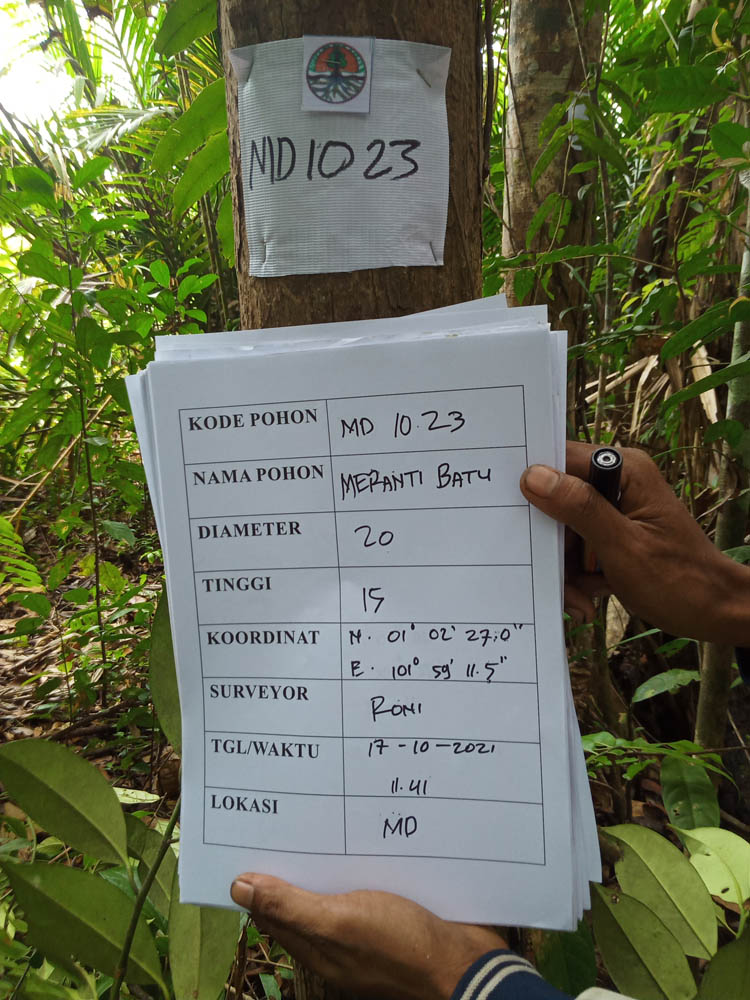 MD 10 23
KODE POHON MD 10.23
NAMA POHON MERANTI BATU
DIAMETER 20
TINGGI 15
KOORDINAT N. 01° 02' 27.0"
E. 101° 59' 11.5"
SURVEYOR RONI
TGL/WAKTU 17-10-2021
11.41
LOKASI MD